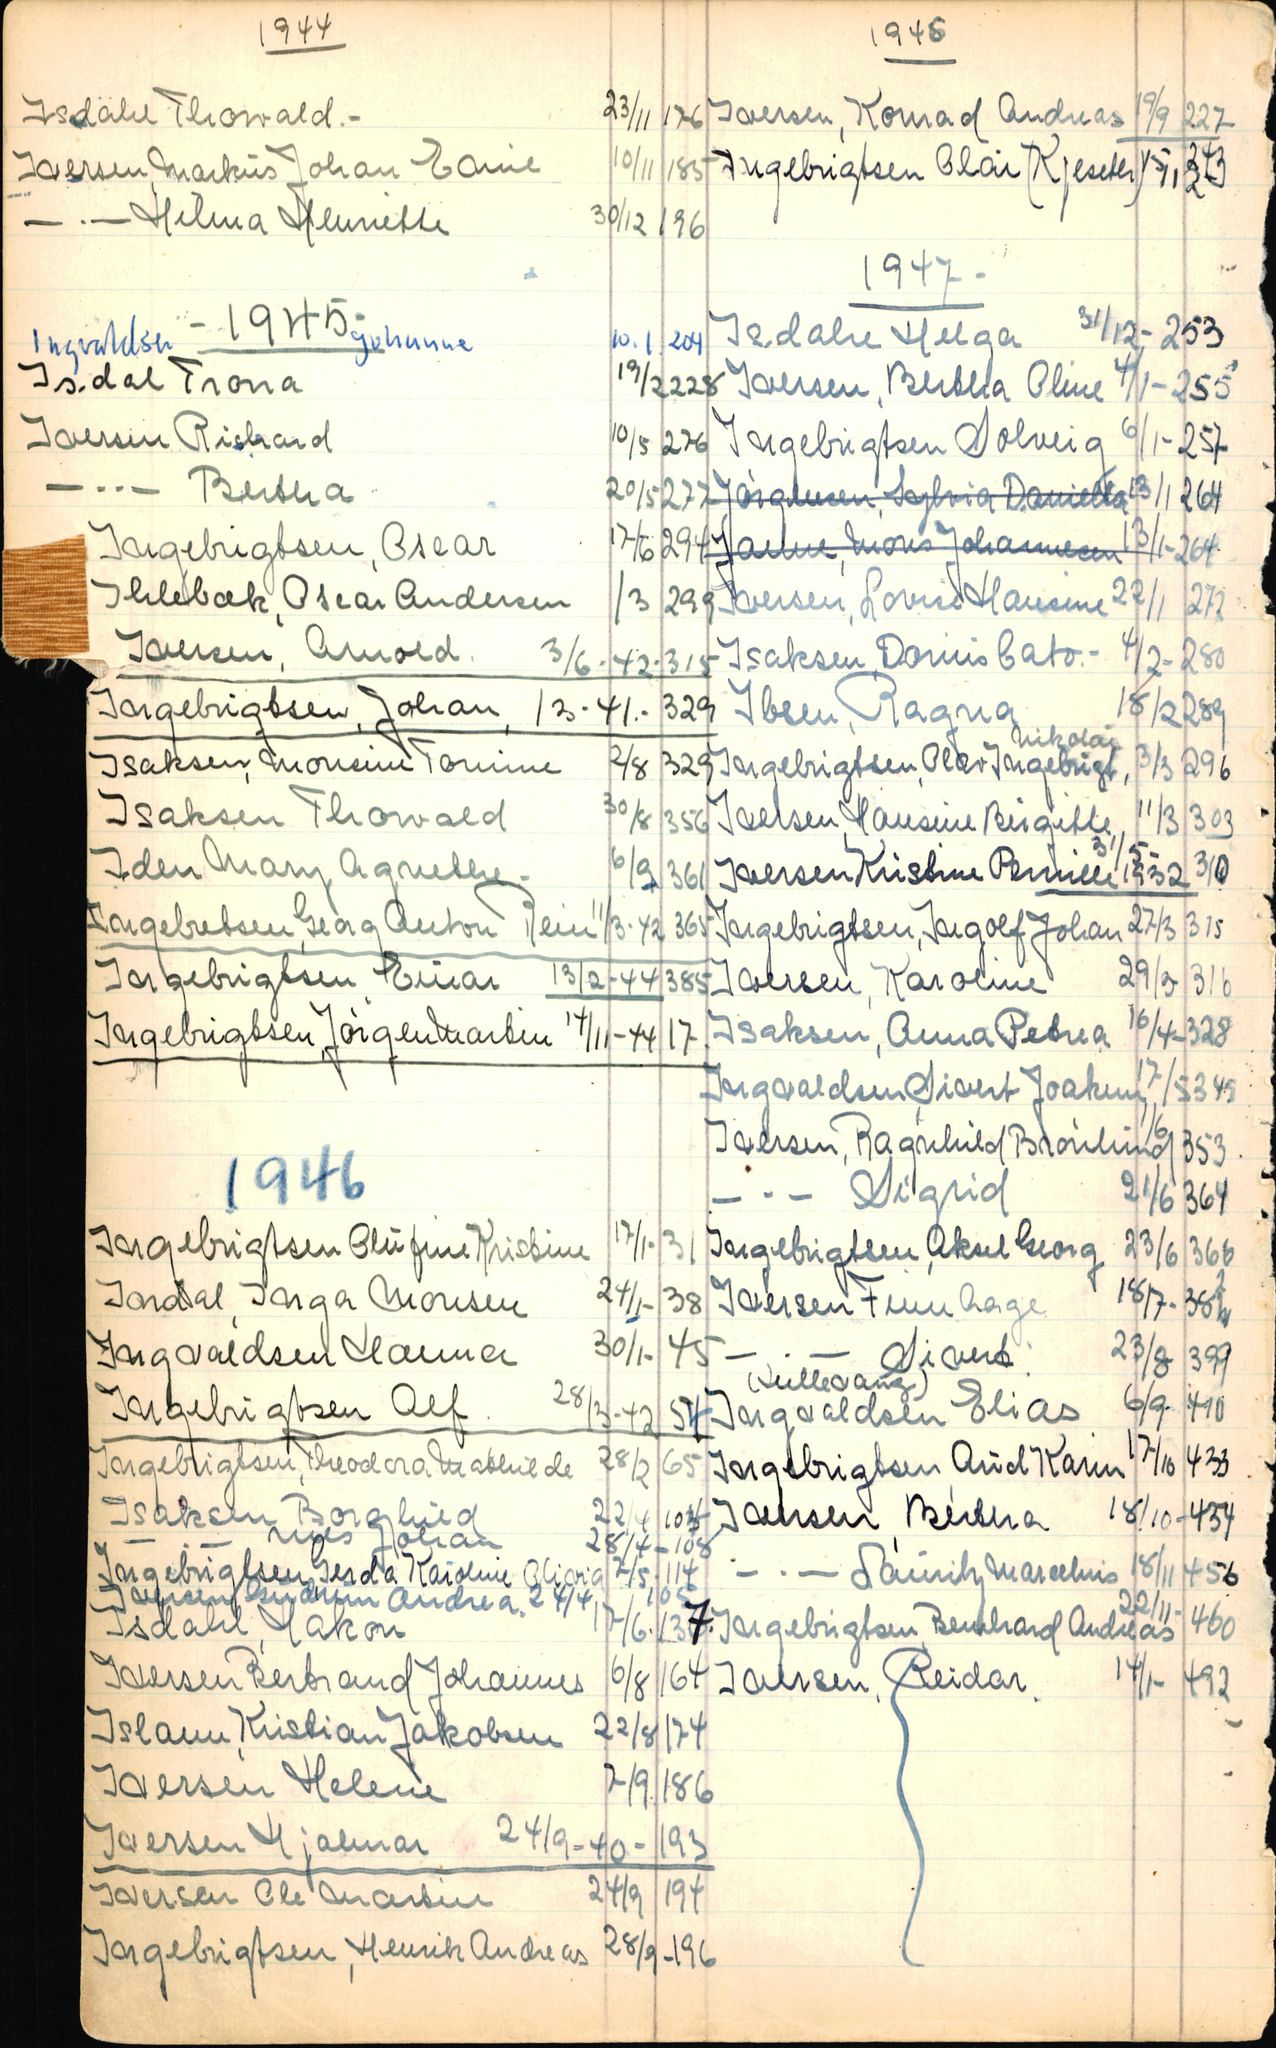 1944
Isdahl Thorvald.- 23/11 176
Iversen, Markus Johan 10/11 185
— · — Hilma Henriette 30/12 196
- 1945 -
Ingvaldsen Johanne 10.1. 204
Isdal Trona 19/2 228
Iversen Rikard 10/5 276
— ·· — Bertha 20/5 277
Ingebrigtsen, Oscar 17/6 294
Ihlebæk, Oscar Andersen 1/3 299
Iversen, Arnold. 3/6-42-315
Ingebrigtsen, Johan, 1/3-41.- 329
Isaksen, Monsine Tomine 2/8 329
Isaksen Thorvald 30/8 356
Iden Mary Agnethe. 6/9 361
Ingebretsen, Georg Anton Rein 11/3-42 365
Ingebrigtsen, Einar 13/2-44 385
Ingebrigtsen, Jörgen Martin 14/11-44 17
1946
Ingebrigtsen Olufine Kristine 17/1- 31
Inndal, Inga Monsen 24/1- 38
Ingvaldsen Hanna 30/1- 45
Ingebrigtsen Alf 28/3-42 54
Ingebrigtsen, Theodora Mathilde 28/2 65
Isaksen Borghild 22/4 105
— — Johan 28/4-108
Ingebrigtsen, Gerda Karoline Olivia 2/5 114
Iversen Gudrun Andrea. 24/4 105
Isdahl, Håkon 17/6. 137.
Iversen Bertrand Johannes 6/8 164
Islann, Kristian Jakobsen 22/8 174
Iversen Helene 7/9 186
Iversen Hjalmar 24/9-40- 193
Iversen Ole Martin 24/9 194
Ingebrigtsen, Henrik Andreas 28/9-196
1946
Iversen, Konrad Andreas 19/9 227
Ingebrigtsen Olai (Kjeseth) 243
1947-
Isdahl Helga 31/12- 253
Iversen, Bertha Oline 4/1- 255
Ingebrigtsen Solveig 6/1- 257
Jörgensen, Sylvia Daniella 13/1 264
Janne, Mons Johannesen 13/1-264
Iversen, Lovise Hansine 22/1 272
Isaksen, Donis Cato.- 4/2- 280
Ibsen, Ragna 18/2 289
Nikolai
Ingebrigtsen, Olav Ingebrigt, 3/3 296
Iversen, Hansine Birgitte, 11/3 303
Iversen Kristine Pernille 31/5-1932 310
Ingebrigtsen, Ingolf Johan 27/3 315
Iversen, Karoline 29/3- 316
Isaksen, Anna Petrea 16/4-328
Ingvaldsen, Sivert Joakim, 17/5 345
Iversen, Ragnhild Brönlund 1/6 353
— ·· — Sigrid 21/6 364
Ingebrigtsen, Aksel Georg 23/6 366
Iversen Finn Aage 18/7-382
— · — Sivert. 23/8- 399
(Lillevang)
Ingvaldsen Elias 6/9- 410
Ingebrigtsen Arid Karin 17/10 433
Iversen, Bertha 18/10-434
— · — Lauritz Marcelius 18/11 456
Ingebrigtsen, Bernhard Andreas 22/11- 460
Iversen, Reidar. 14/1- 492